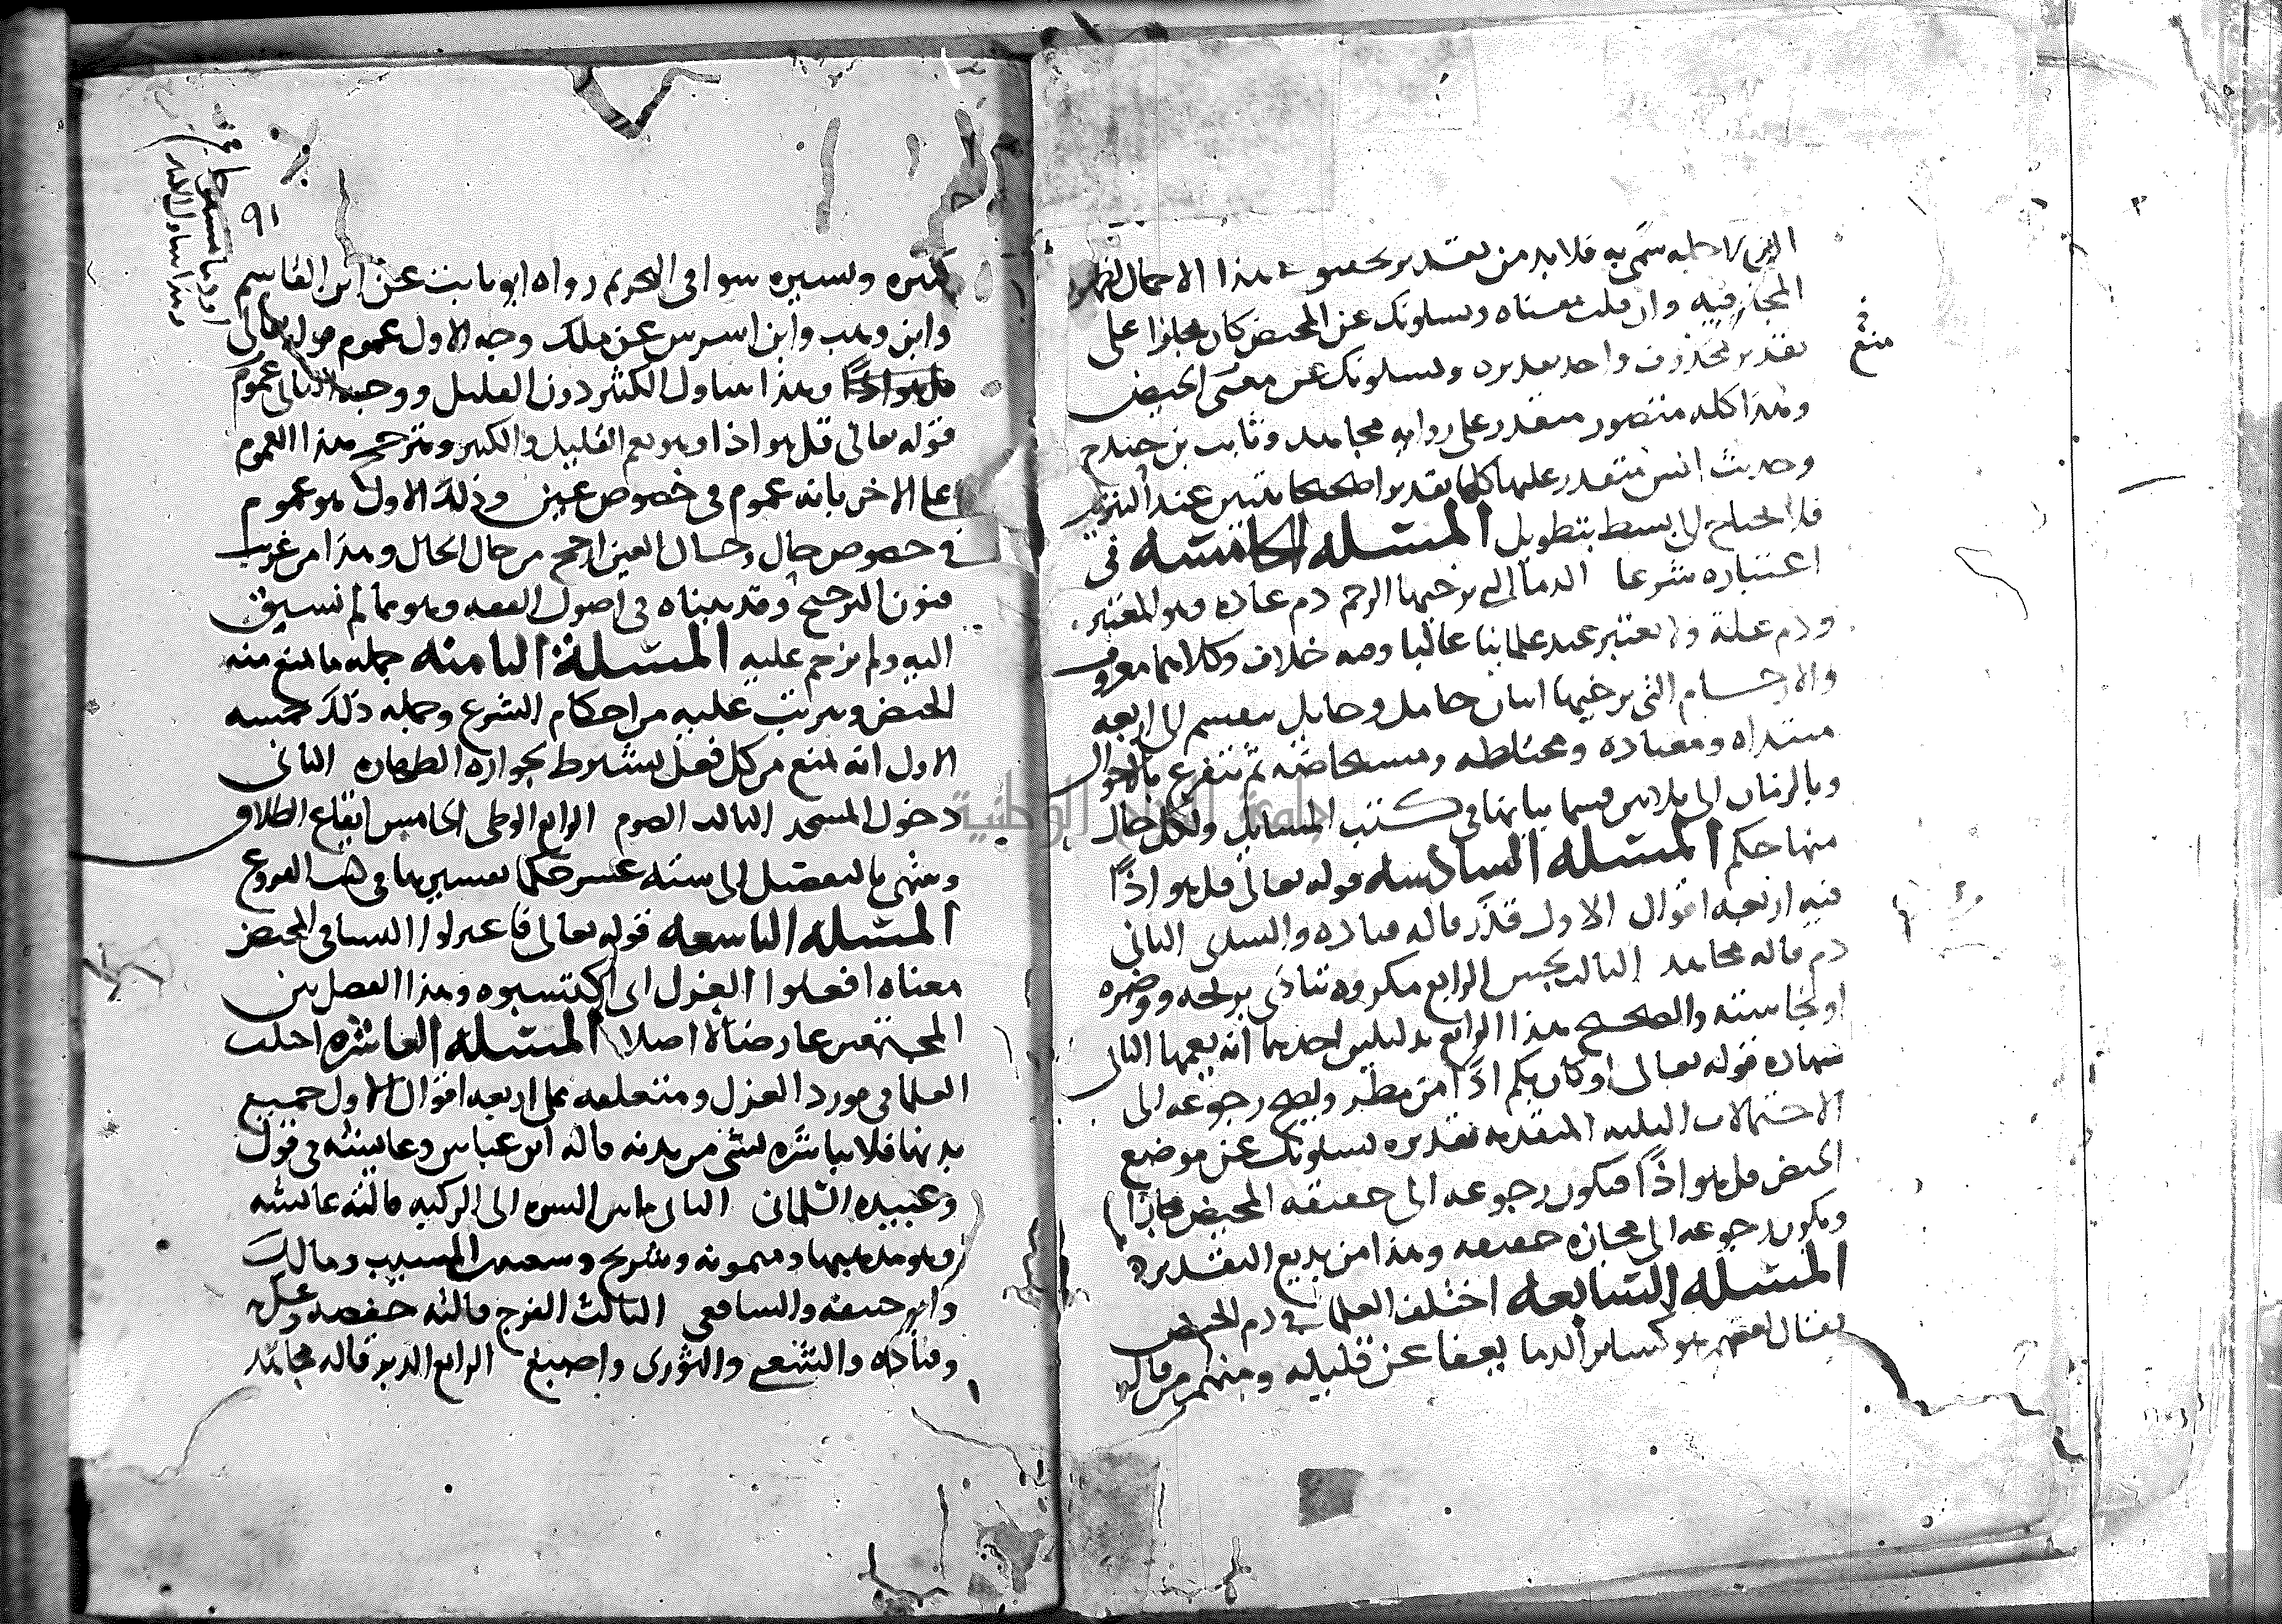 الذي لاجله سمي به فلا بد من تقدير تحقيق في هذا الاحتمال لظهور
المجاز فيه وان قلت معناه ويسلونك عن المحيض كان مجازا على
تقدير محذوف واحد تقديره ويسلونك عن منع الحيض
وهذا كله متصور متقدر على رواية مجاهد وثابت بن دحداح
وحديث انس متقدر عليها كلها تقديرا صحيحا يتبين عند التنزيل
فلا نحتاج الى بسط بتطويل المسئله الخامسه في
اعتباره شرعا الدما التي يرخيها الرحم دم عادة وهو المعتبر
ودم علة ولا يعتبر عند علمائنا غالبا وفيه خلاف وكلاهما معروف
والارحام التي يرخيها اثنان حامل وحايل ينقسم الى اربعه
مبتداه ومعتادة ومختلطه ومستحاضة ثم تتفرع بالاحوال
وبالزمان الى ثلاثين قسما بيانها في كتب المسايل ولكل حال
منها حكم المسئله السادسه قوله تعالى قل هو اذًا
فيه اربعه اقوال الاول قذر قاله قتاده والسدي الثاني
دم قاله مجاهد الثالث نجس الرابع مكروه تتاذى بريحه وضره
او نجاسته والصحيح هذا الرابع بدليلين احدهما انه يعمها الثاني
شهاده قوله تعالى او كان بكم اذًا من مطر ويصح رجوعه الى
الاحتمالات الثلثه المتقدمه تقديره يسلونك عن موضع
الحيض قل هو اذًا فيكون رجوعه الى حقيقه المحيض مجازًا
ويكون رجوعه الى مجازه حقيقه وهذا من بديع التقدير
المسئله السابعه اختلف العلما في دم الحيض
فقال بعضهم هو كساير الدما يعفا عن قليله ومنهم من قال
منع
٩١
كثيره ويسيره سوا في التحريم رواه ابو ثابت عن ابن القاسم
وابن وهب وابن سيرين عن ملك وجه الاول عموم قوله تعالى
قل هو اذًا وهذا يتناول الكثير دون القليل ووجه الثاني عموم
قوله تعالى قل هو اذا وهو يعم القليل والكثير ويترجح هذا العموم
على الاخر بانه عموم في خصوص عين وذلك الاول هو عموم
في خصوص حال وحال العين ارجح من حال الحال وهذا من غريب
فنون الترجيح وقد بيناه في اصول الفقه وهو مما لم نسبق
اليه ولم نزحم عليه المسئلة الثامنه جمله ما يمنع منه
الحيض ويترتب عليه من احكام الشرع وجمله ذلك خمسه
الاول انه يمنع من كل فعل يشترط بجوازه الطهاره الثاني
دخول المسجد الثالث الصوم الرابع الوطى الخامس ايقاع الطلاق
وينتهي بالتفصيل الى سته عشر حكما تفسيرها في كتب الفروع
المسئله التاسعه قوله تعالى فاعتزلوا النسا في المحيض
معناه افعلوا العزل اي اكتسبوه وهذا الفصل بين
المجتمعين عارضا لا اصلا المسئله العاشره اختلف
العلما في مورد العزل ومتعلقه على اربعه اقوال الاول جميع
بدنها فلا يباشره بشي من بدنه قاله ابن عباس وعايشه في قول
وعبيده السلماني الثاني ما بين السره الى الركبه قالته عايشه
وهو مذهبها وميمونه وشريح وسعيد بن المسيب ومالك
وابو حنيفه والشافعي الثالث الفرج قالته حفصه وعكرمه
وقتاده والشعبي والثوري واصبغ الرابع الدبر قاله مجاهد
جامعة النجاح الوطنية